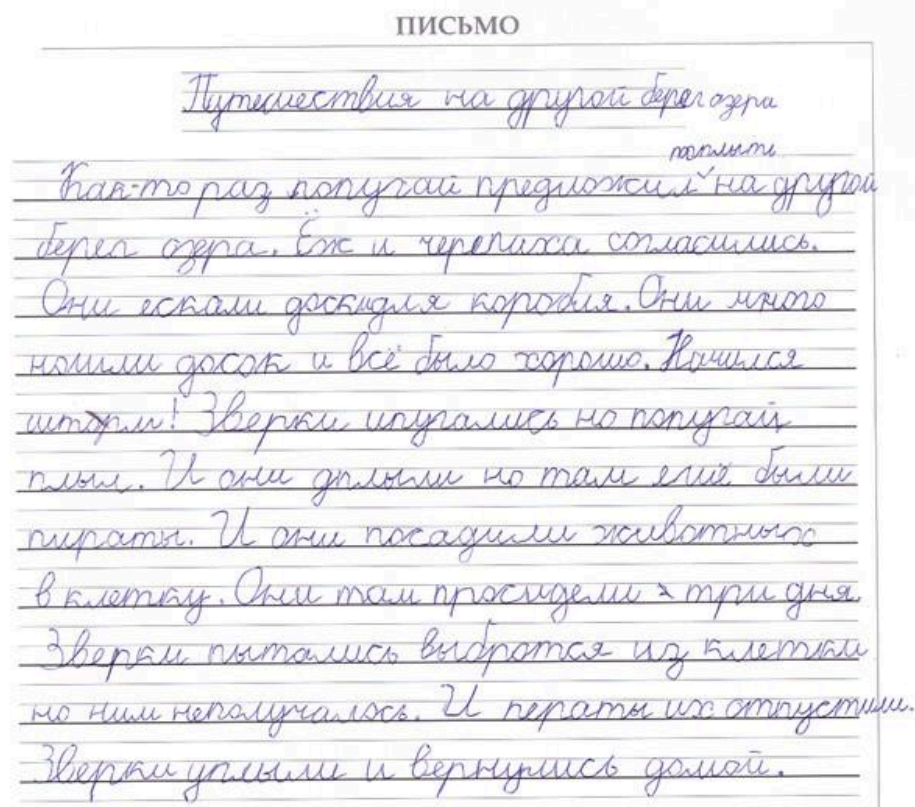 ПИСЬМО
Путешествия на другой берег озера
поплыть
Как-то раз попугай предложил на другой
берег озера. Ёж и черепаха согласились.
Они ескали доски для коробля. Они много
ношли досок и всё было хорошо. Начился
шторм! Зверки ипугались но попугай
плыл. И они дплыли но там ещё были
пираты. И они посадили животных
в клетку. Они там просидели три дня.
Зверки пытались выбротся из клетки
но ним неполучалось. Иператы их отпустили.
Зверки уплыли и вернулись домой.